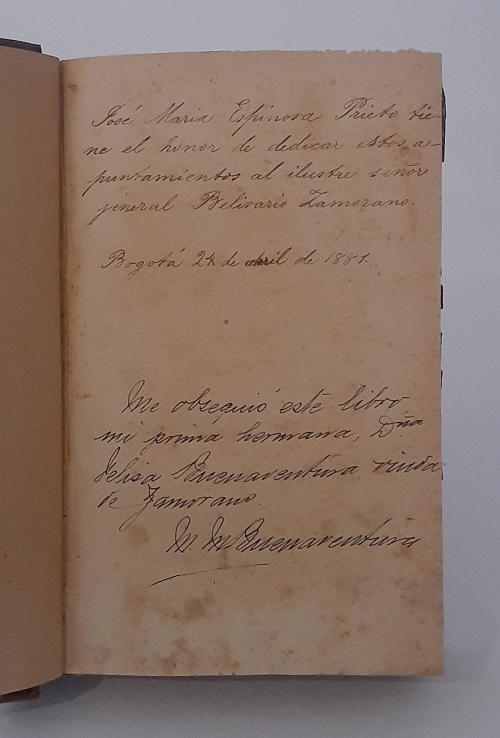 José Maria Espinosa Prieto tie-
ne el honor de dedicar estos a-
puntamientos al ilustre señor
jeneral Belisario Zamorano.
Bogotá 24 de abril de 1881.
Me obsequió este libro
mi prima hermana, Dña
Felisa Buenaventura viuda
de Zamorano.
M. M. Buenaventura